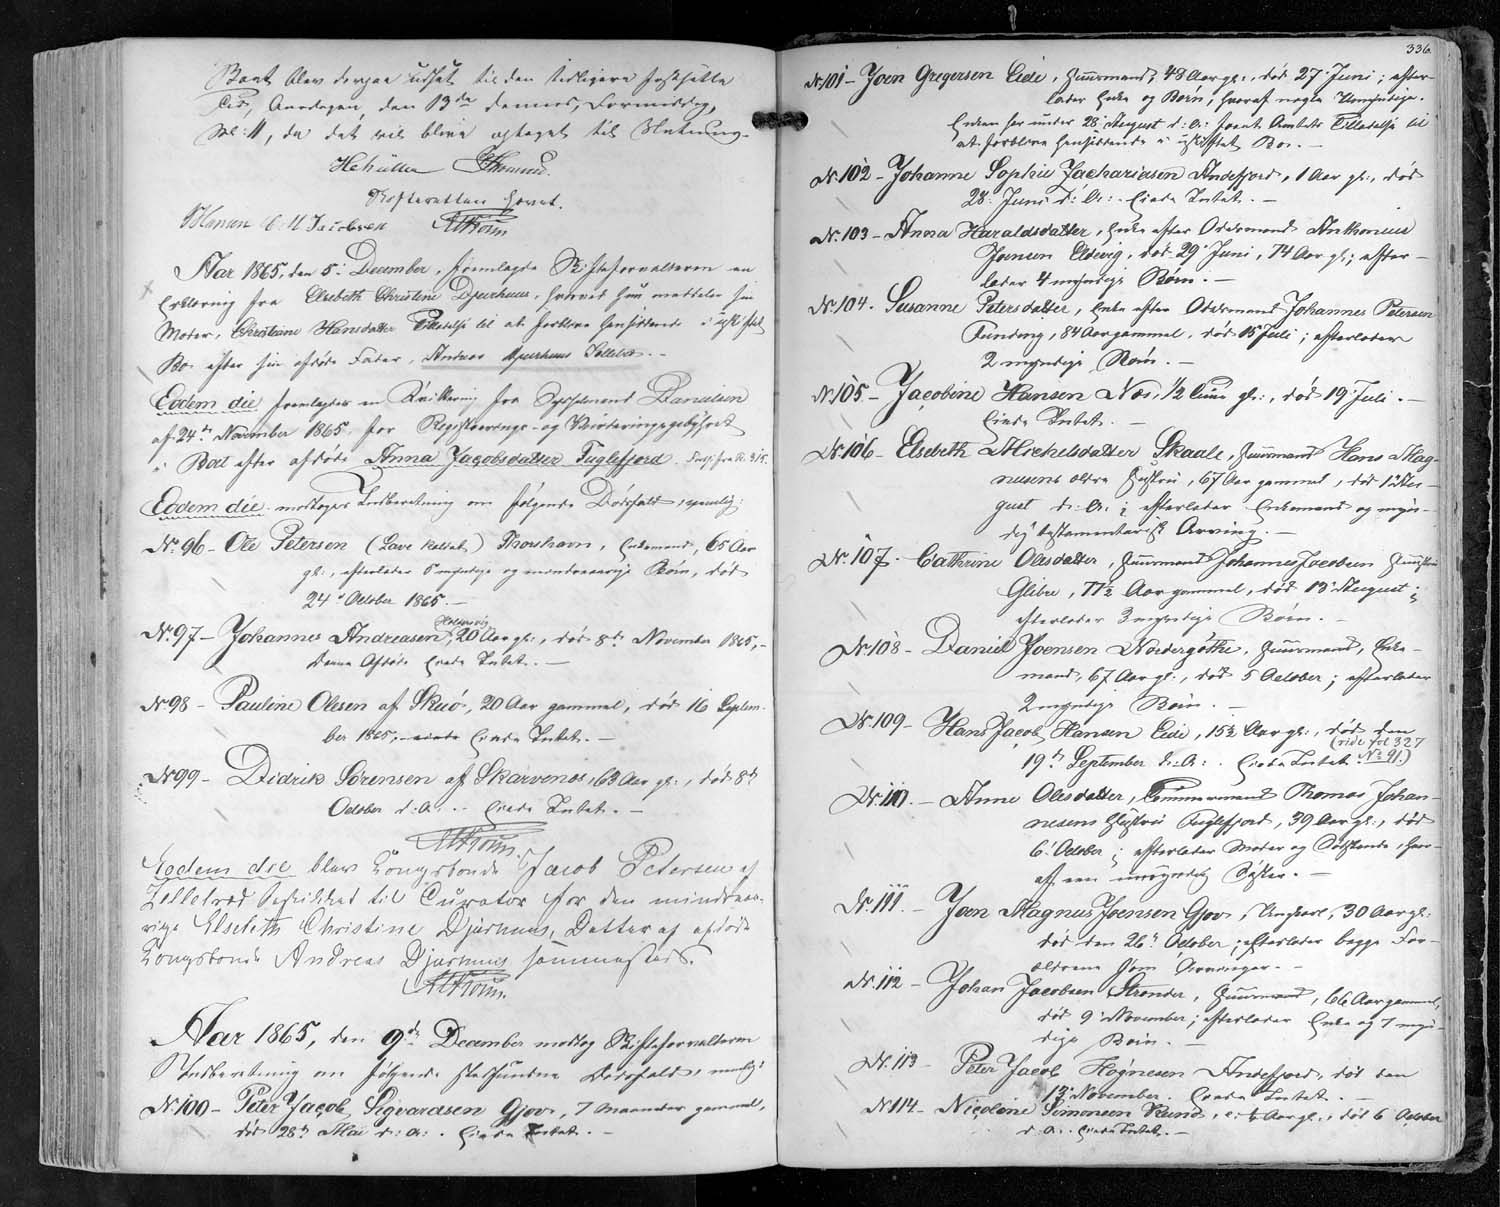 Boet blev derpaa udsat til den tidligere fastsatte
Tid, Onsdagen den 13de dennes, Formiddag,
Kl: 11, da det vil blive optaget til Slutning.
Skifteretten hævet.
Aar 1865, den 5: December, fremlagde Skifteforvalteren en
Erklæring fra Elsebeth Christine Djurhuus, hvorved hun meddeler sin
Moder, Christine Hansdatter Tilladelse til at forblive hensiddende i uskiftet
Bo efter sin afdøde Fader, Andreas Djurhuus Sellatræ. —
Eodem die fremlagdes en Qvittering fra Sysselmand Danielsen
af 24de November 1865 for Registrerings- og Vurderingsgebyhret
i Boet efter afdøde Anna Jacobsdatter Fuglefjord.
Eodem die modtoges Indberetning om følgende Dødsfald, nemlig:
No. 96 – Ole Petersen (Lave kaldet) Thorshavn, Enkemand, 65 Aar
gl:, efterlader myndige og mindreaarige Børn, død
24de October 1865. —
No. 97 – Johannes Andreasen, 20 Aar gl:, død 8de November 1865, –
Denne Afdøde Eiede Intet. —
No. 98 – Pauline Olesen af Skuø, 20 Aar gammel, død 16 Septem-
ber 1865, Eiede Intet. —
No. 99 – Didrik Sørensen af Skarvenæs, 63 Aar gl:, død 8de
October d: A: . Eiede Intet. —
Eodem die blev Kongsbonde Jacob Petersen af
Sellatræ beskikket til Curator for den mindreaa-
rige Elsebeth Christine Djurhuus, Datter af afdøde
Kongsbonde Andreas Djurhuus sammesteds.
Aar 1865, den 9de December modtog Skifteforvalteren
Indberetning om følgende stedfundne Dødsfald, nemlig:
No. 100 – Peter Jacob Sigvardsen Gjov, 7 Maaneder gammel,
død 28de Mai d: A: . Eiede Intet. —
336.
No. 101 – Joen Gregersen Eide, Huusmand, 48 Aar gl:, død 27: Juni; efter-
lader Enke og Børn, hvoraf nogle Umyndige.
Enken har under 28: August d: A: faaet Amtets Tilladelse til
at forblive hensiddende i uskiftet Bo. —
No. 102 – Johanne Sophie Zachariasen Andefjord, 1 Aar gl:, død
28. Juni d: A: . Eiede Intet. —
No. 103 – Anna Haraldsdatter, Enke efter Odelsmand Anthonius
Joensen Eldevig, død 29: Juni, 74 Aar gl:; efter-
lader 4 myndige Børn. —
No. 104. Susanne Petersdatter, Enke efter Odelsmand Johannes Petersen
Funding, 84 Aar gammel, død 15: Juli; efterlader
2 myndige Børn. —
No. 105 – Jacobine Hansen Næs, 1/2 Time gl:, død 19: Juli. —
Eiede Intet. —
No. 106 – Elsebeth Michelsdatter Skaale, Huusmand Hans Mag-
nusens ældre Hustru, 67 Aar gammel, død 1: Au-
gust d: A: ; efterlader Enkemand og myn-
dig testamentarisk Arving. —
No. 107. Cathrine Olesdatter, Huusmand Johannes Jacobsen Hustru
Glibre, 77½ Aar gammel, død 13: August;
efterlader 3 myndige Børn. —
No. 108 – Daniel Joensen Nordregøthe, Huusmand, Enke-
mand, 67 Aar gl:, død 5 October; efterlader
2 myndige Børn. —
No. 109 – Hans Jacob Hansen Eide, 15½ Aar gl:, død den
(vide fol 327
19de September d: A: . Eiede Intet. No 91.)
No. 110. – Anne Olesdatter, Tømmermand Thomas Johan-
nesens Hustru Fuglefjord, 39 Aar gl:, død
6: October; efterlader Moder og Sødskende, hvor-
af een umyndig Søster. —
No. 111. – Joen Magnus Joensen Gjov, Ungkarl, 30 Aar gl:
død den 26de October; efterlader begge For-
ældrene som Arvinger. —
No. 112 – Johan Jacobsen Strender, Huusmand, 66 Aar gammel,
død 9: November; efterlader Enke og 7 myn-
dige Børn. —
No. 113 – Peter Jacob Høgnesen Andefjord, død den
13: November. Eiede Intet. —
No. 114 – Nicoline Simonsen Kund, Aar gl:, død 6 October
d: A: . Eiede Intet. —